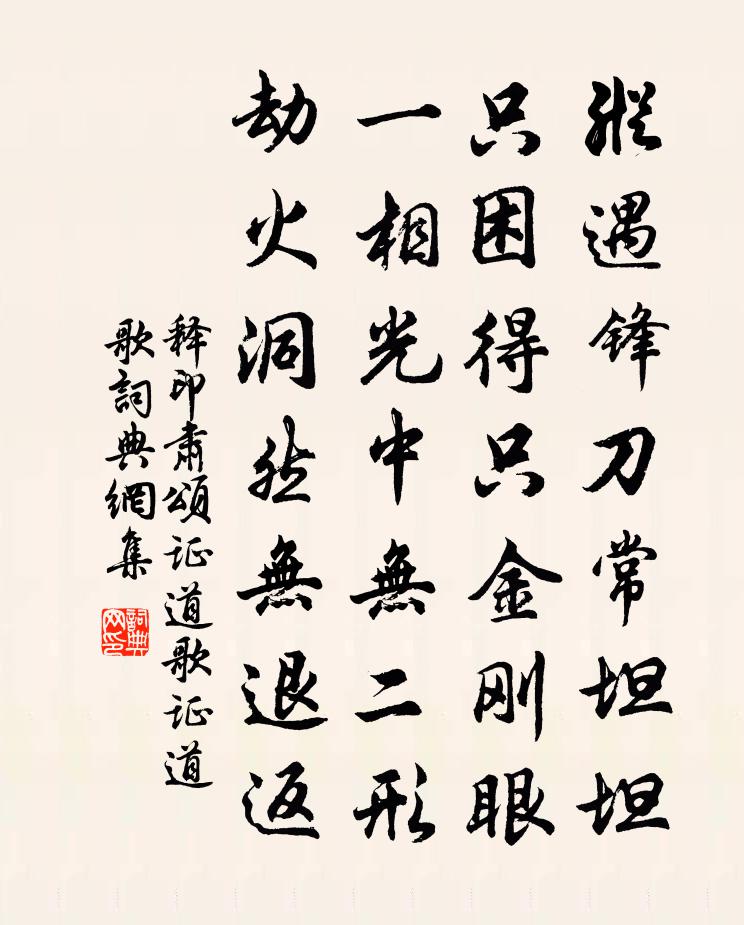 縱遇锋刀常坦坦
只困得只金刚眼
一相光中無二形
劫火洞然無退返
释印肃頌证道歌证道
歌詞典網集
詞典
网印